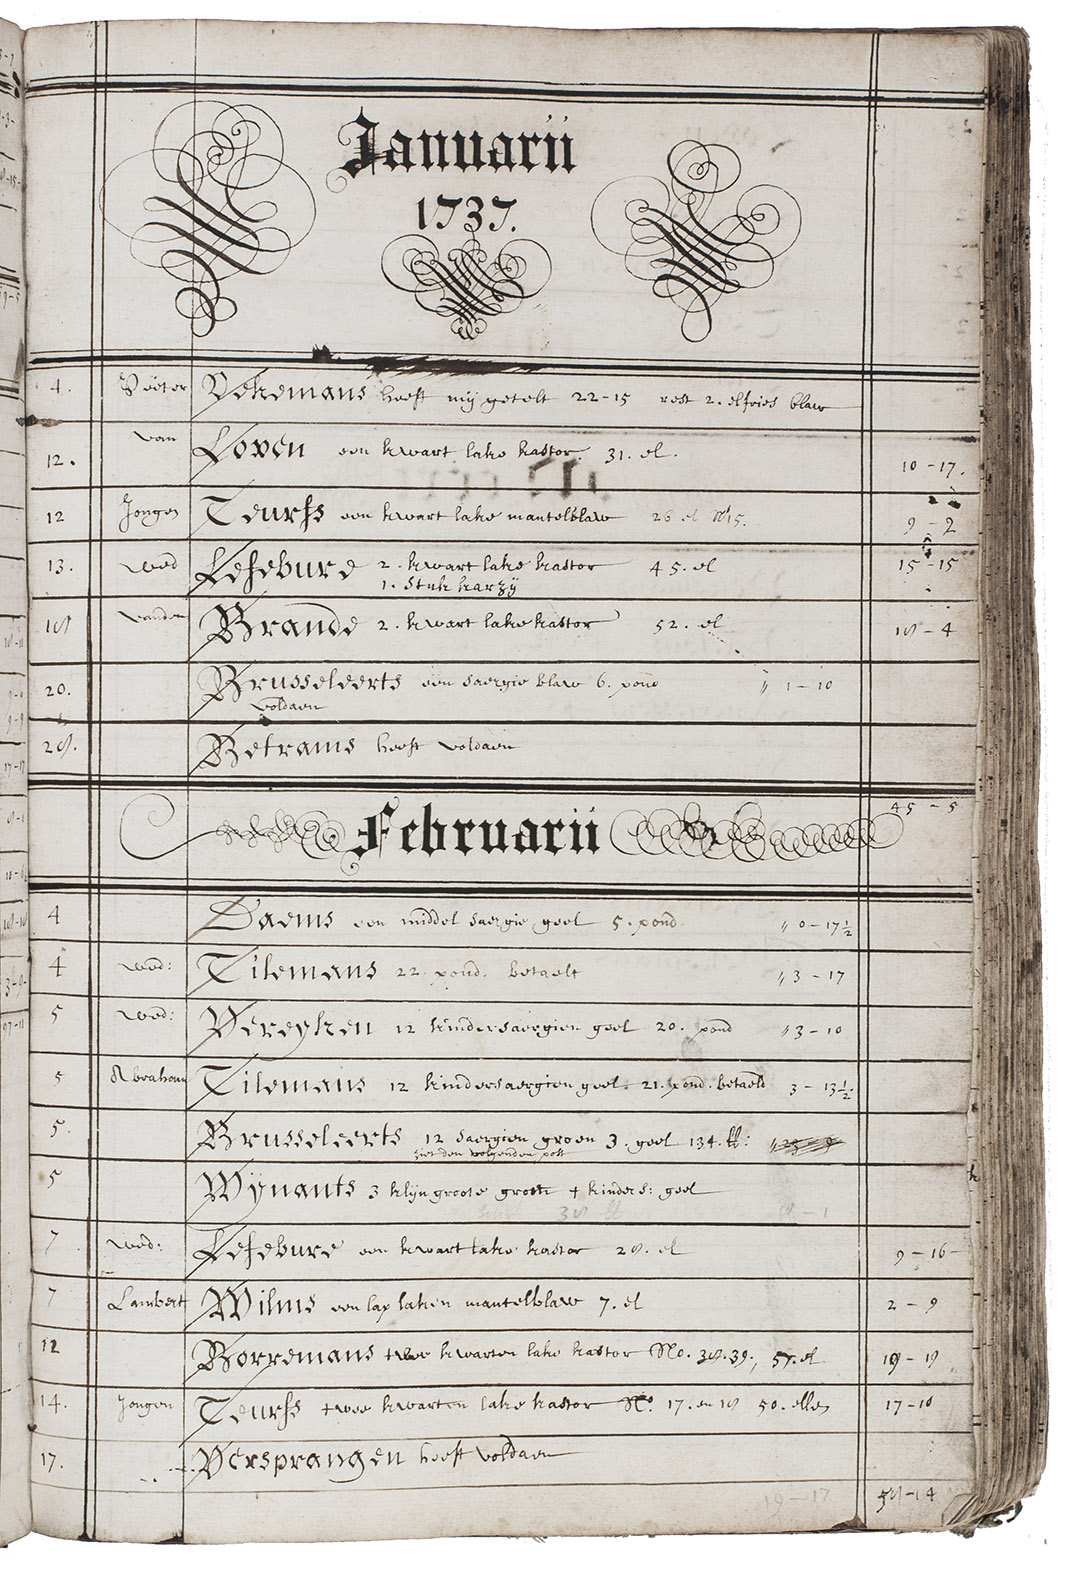 Januarii
1737.
4. Peeter Dekemans heeft mij getelt 22-15 rest 2. blaw
12. van Loven een kwart lake kastor. 31. el. 10-17.
12 Jongen Teurfs een kwart lake mantelblaw 26 el N 15. 9-2
13. wed Lefebure 2. kwart lake kastor 45. el 15-15
1. stuk karzij
18 vanden Brande 2. kwart lake kastor 52. el 18-4
20. Brusseleerts een saergie blaw 6. pond 1-10
voldaen
28. Betrams heeft voldaen
45-5
Februarii
4 Daems een middel saergie geel 5. pond. 0-17½
4 wed: Tilemans 22 pond. betaelt 3-17
5 wed: Vereyken 12 kindersaergien geel 20. pond 3-10
5 Abraham Tilemans 12 kindersaergien geel. 21. pond. betaeld 3-13½
5. Brusseleerts 12 saergien groen 3. geel 134. ℔:
ziet den volgenden post
5 Wijnants 3 klijn groote groen + kinders: geel
38 ℔ 8-1
7 wed: Lefebure een kwart lake kastor 28. el 9-16-
7 Lambert Wilms een lap laken mantelblaw 7. el 2-9
12 Borremans twee kwarten lake kastor No. 38. 39., 57. el 19-19
14. Jongen Teurfs twee kwarten lake kastor No. 17. en 18 50. ellen 17-10
17. Versprangen heeft voldaen
19-17 58-14